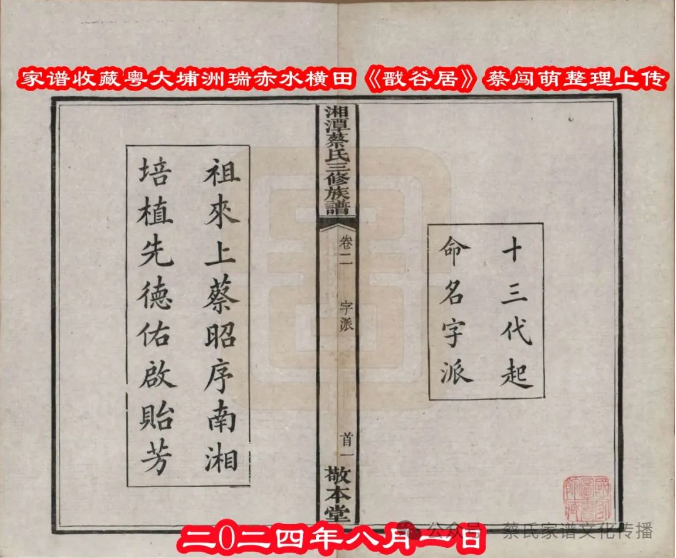 家谱收藏粤大埔洲瑞赤水横田《戬谷居》蔡闯萌整理上传
十三代起
命名字派
湘潭蔡氏三修族譜
卷二
字派
首一
敬本堂
祖來上蔡昭序南湘
培植先德佑啟貽芳
公众号·蔡氏家谱文化传播
二0二四年八月一日